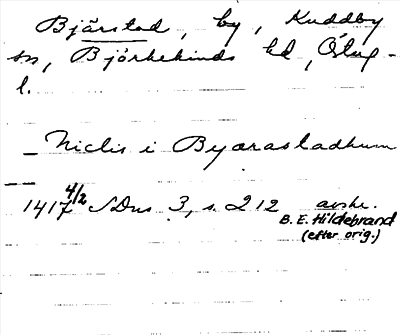 Bjärstad, by, Kuddby
sn, Björkekinds hd, Östg-
l.
_ Niclis i Byærastadhum
4/2
1417 SDns 3, s. 212 avskr.
B. E. Hildebrand
(efter orig.)